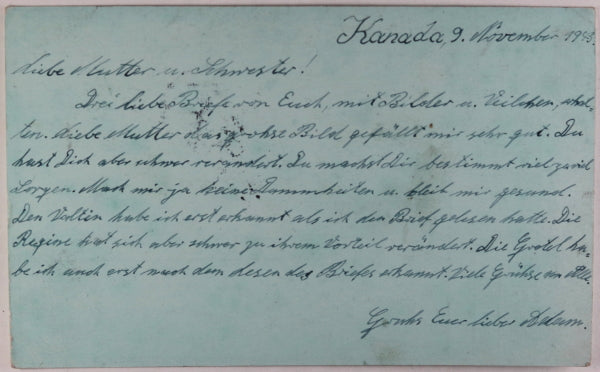 Kanada, 9. November 1943.
Liebe Mutter u. Schwester!
Drei liebe Briefe von Euch, mit Bilder u. Veilchen, erhal-
ten. Liebe Mutter das grohse Bild gefällt mir sehr gut. Du
hast Dich aber schwer verändert. Du machst Dir bestimmt viel zuviel
Sorgen. Mach mir ja keine Dummheiten u. bleib mir gesund.
Den Valtin habe ich erst erkannt als ich den Brief gelesen hatte. Die
Regine hat sich aber schwer zu ihrem Vorteil verändert. Die Gretel ha-
be ich auch erst nach dem lesen des Briefes erkannt. Viele Grühse an Alle.
Gruhs Euer lieber Adam.